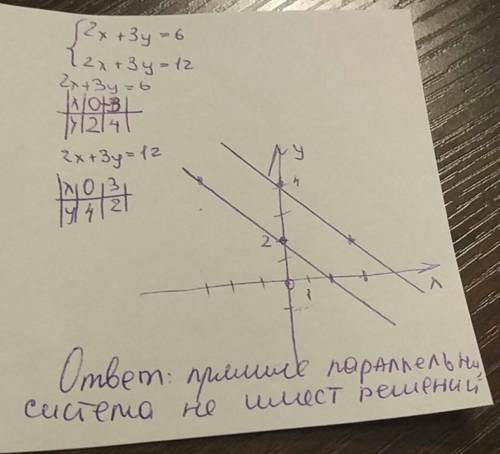 {2x + 3y = 6
2x + 3y = 12
2x + 3y = 6
x | 0 | -3
y | 2 | 4
2x + 3y = 12
x | 0 | 3
y | 4 | 2
y
4
2
0
1
x
Ответ: прямые параллельны,
система не имеет решений